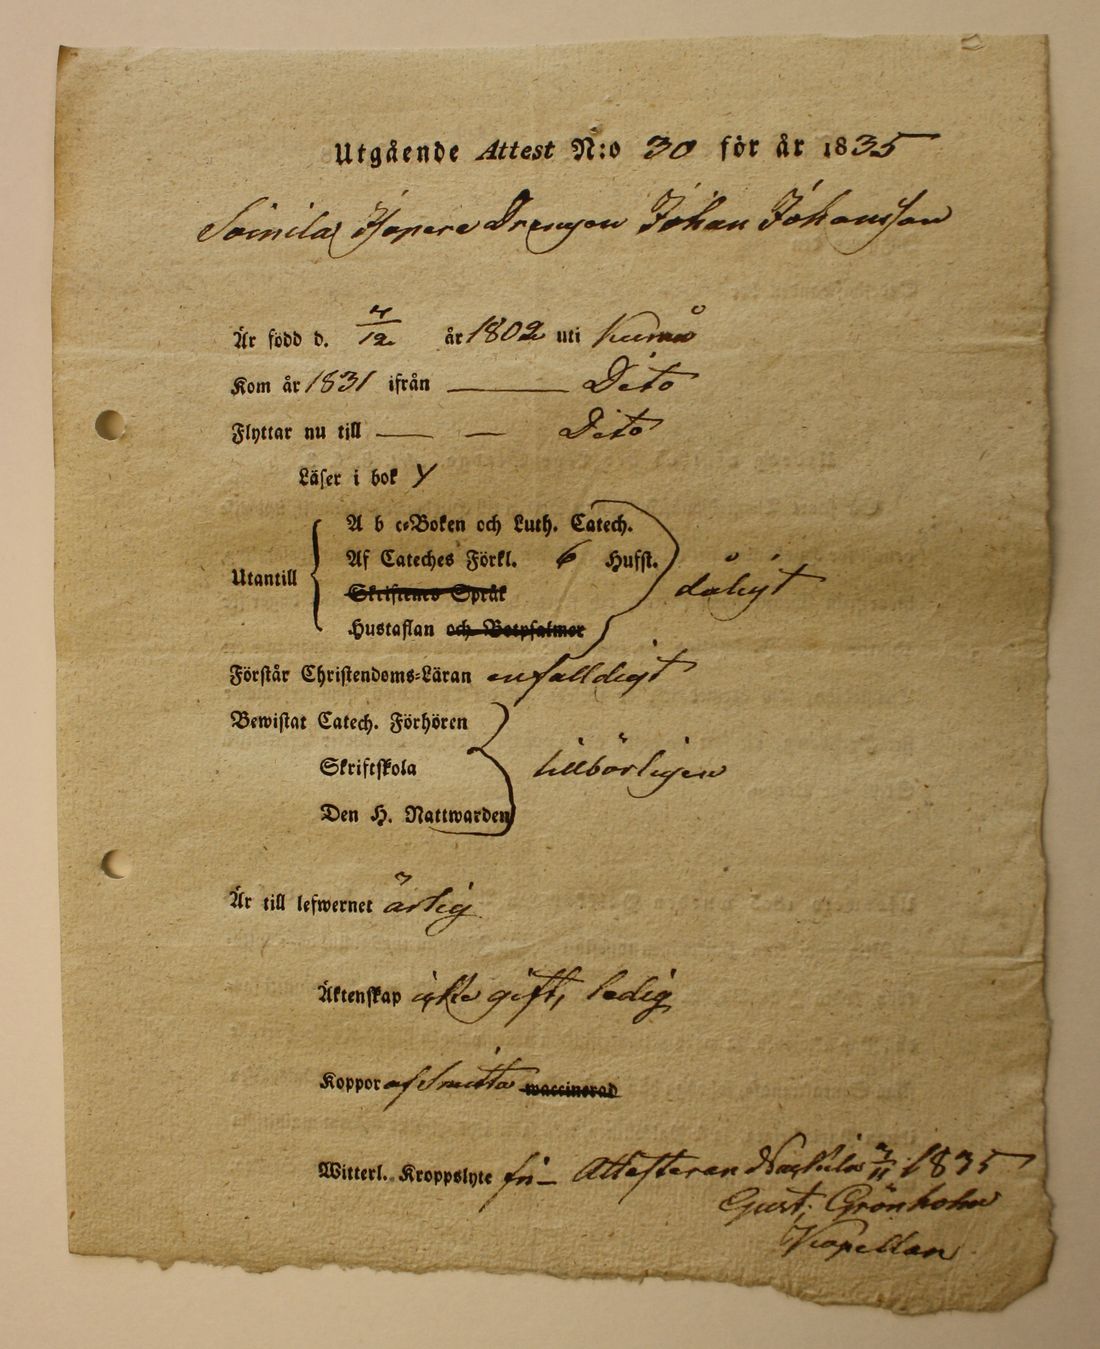 Utgående Attest N:o 30 för år 1835
Soinila Drengen Johan Johansson
Är född d. 4/12 år 1802 uti Kumå
Kom år 1831 ifrån — Dito
Flyttar nu till — — Dito
Läser i bok y
A b c-Boken och Luth. Catech.
Af Cateches Förkl. 6 Hufst.
Utantill dåligt
Skriftenes Språk
Hustaflan och Botpsalmer
Förstår Christendoms-Läran enfalldigt
Bewistat Catech. Förhören
Skriftskola tillbörligen
Den H. Nattwarden
Är till lefwernet ärlig
Äktenskap icke gift, ledig
Koppor af Smitta waccinerad
Witterl. Kroppslyte fri — Attesteran Nackila 3/11 1835
Gust. Grönholm
Kapellan